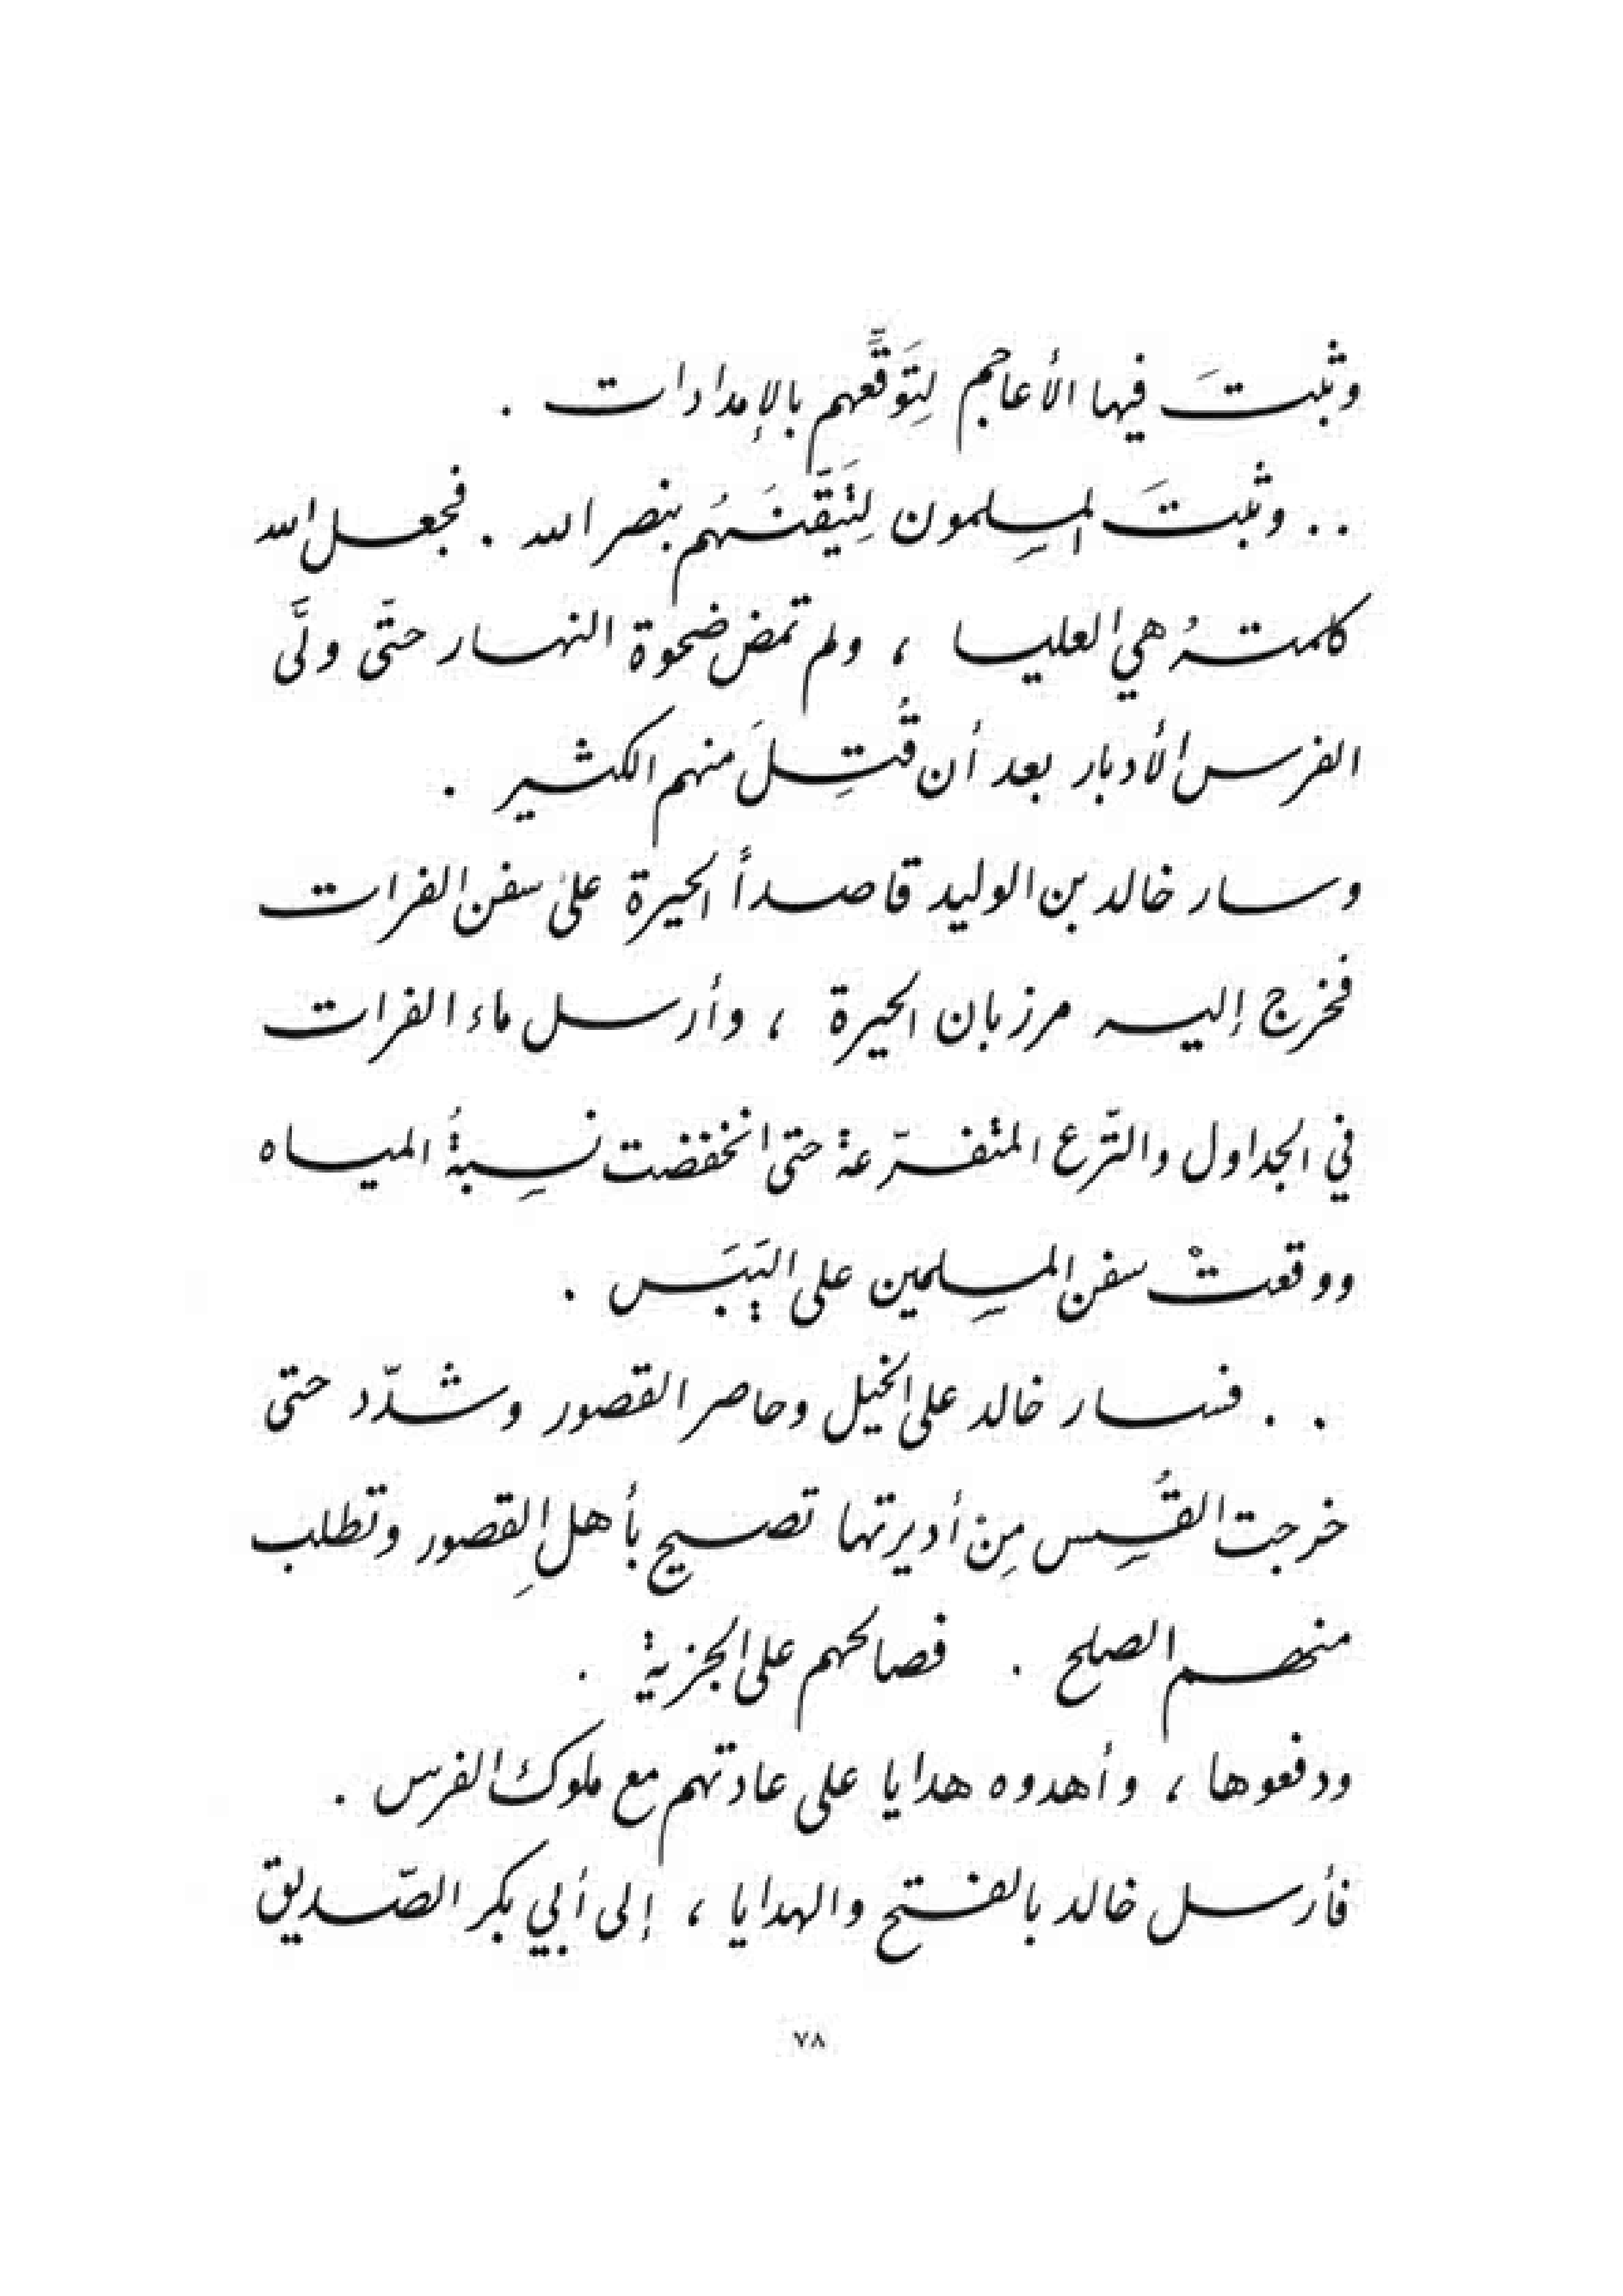 وثبتَ فيها الأعاجم لِتَوَقُّعهم بالإمدادات .
.. وثبتَ المسلِمون لِتَيَقّنَهُم بنصر الله . فجعل الله
كلمتهُ هي العليا ، ولم تمض ضحوة النهار حتّى ولَّى
الفرس الأدبار بعد أن قُتِلَ منهم الكثير .
وسار خالد بن الوليد قاصداً الحيرة على سفن الفرات
فخرج إليه مرزبان الحيرة ، وأرسل ماء الفرات
في الجداول والتّرع المتفرّعة حتى انخفضت نسِبةُ المياه
ووقعتْ سفن المسلِمين على اليَبَس .
. . فسار خالد على الخيل وحاصر القصور وشدّد حتى
خرجت القُسِس مِنْ أديرتها تصيح بأهلِ القصور وتطلب
منهم الصلح . فصالحهم على الجزية .
ودفعوها ، وأهدوه هدايا على عادتهم مع ملوك الفرس .
فأرسل خالد بالفتح والهدايا ، إلى أبي بكر الصّديق
٧٨